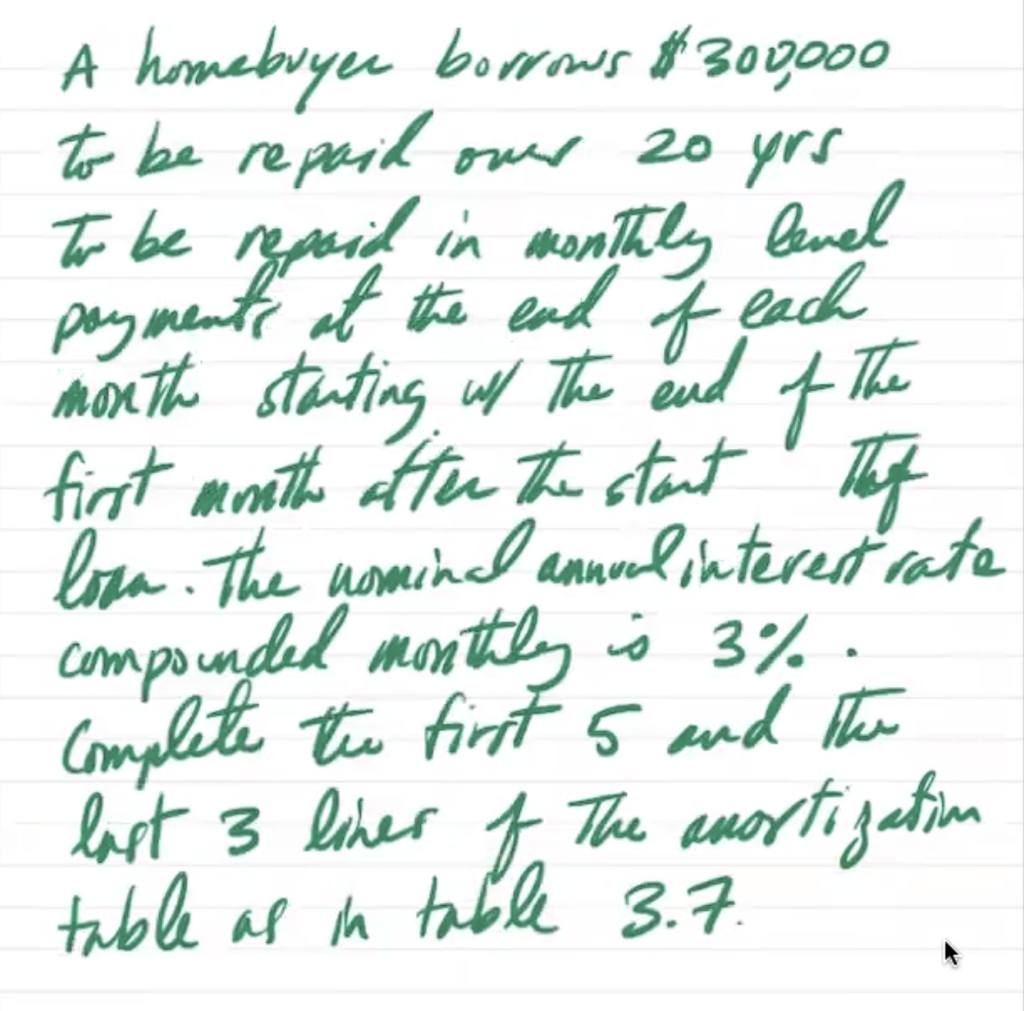 A homebuyer borrows $300,000
to be repaid over 20 yrs
to be repaid in monthly level
payments at the end of each
month starting w/ the end of the
first month after the start
loan. The nominal annual interest rate
compounded monthly is 3%.
Complete the first 5 and the
last 3 lines of the amortization
table as in table 3.7.